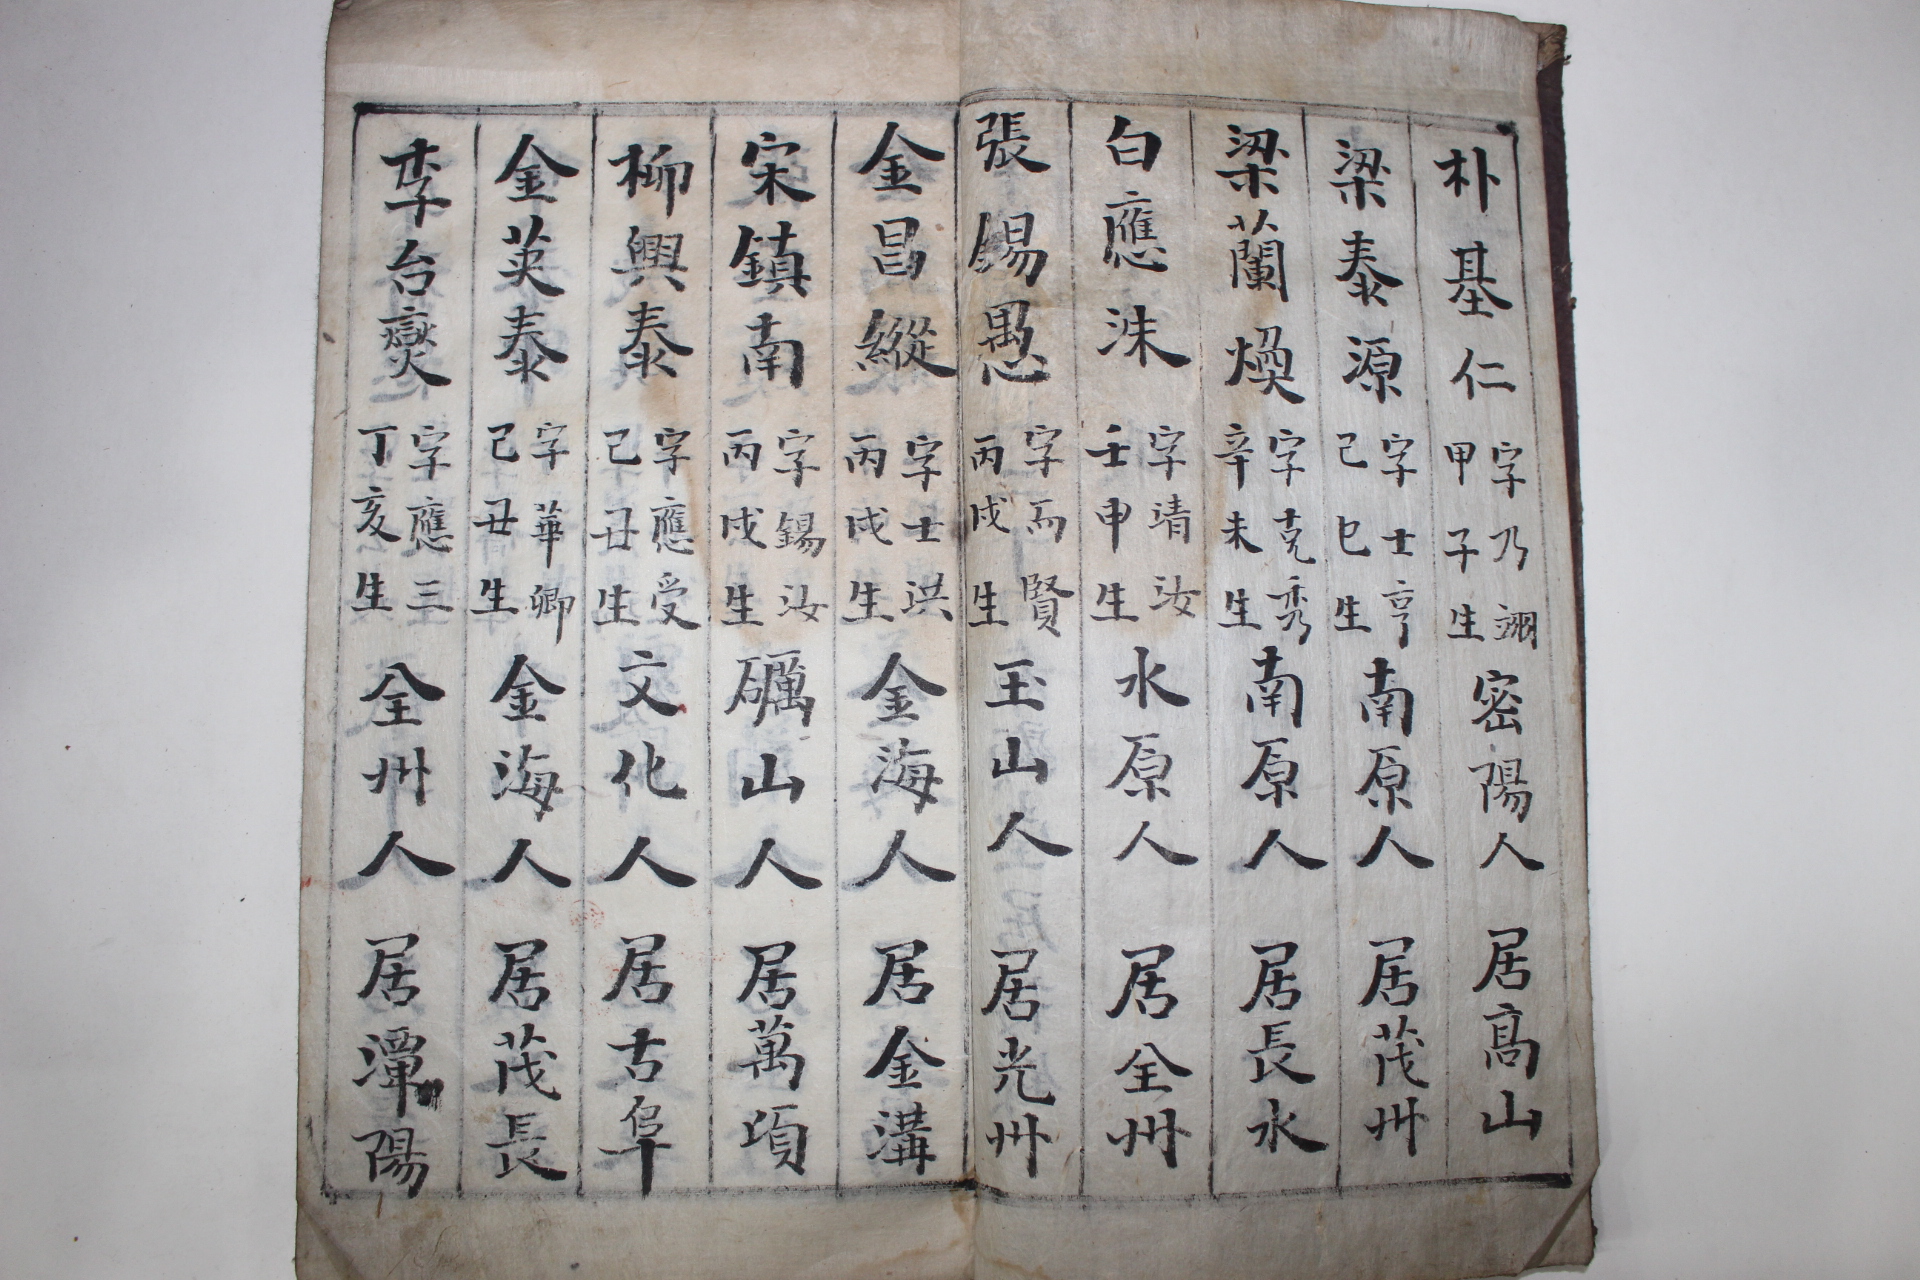 朴基仁 字乃翊 甲子生 密陽人 居高山
梁泰源 字士亨 己巳生 南原人 居茂州
梁蘭煥 字克秀 辛未生 南原人 居長水
白應洙 字清汝 壬申生 水原人 居全州
張錫愚 字而賢 丙戌生 玉山人 居光州
金昌縱 字士洪 丙戌生 金海人 居金溝
宋鎮南 字錫汝 丙戌生 礪山人 居萬頃
柳興泰 字應受 己丑生 文化人 居古阜
金英泰 字華卿 己丑生 金海人 居茂長
李台燮 字應三 丁亥生 全州人 居潭陽